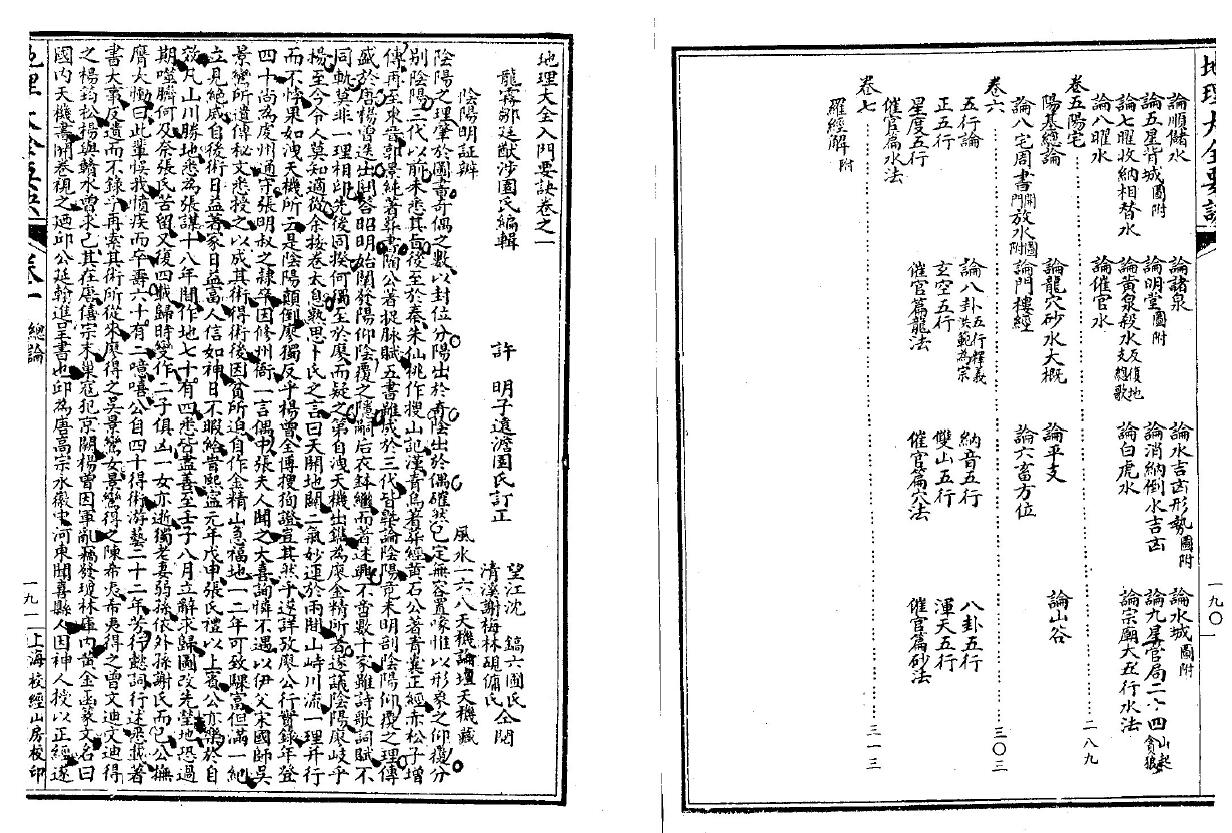 地理大全要訣
一九〇
論順儲水　論諸泉　論水吉凶形勢圖附　論水城圖附
論五星背城圖附　論明堂圖附　論消納倒水吉凶　論九星管局二十四山起貪狼
論七曜收納相替水　論黃泉殺水反復地支總歌　論白虎水　論宗廟大五行水法
論八曜水　論催官水
卷五陽宅　二八九
陽基總論　論龍穴砂水大概　論平支　論山谷
論八宅周書開門放水圖附　論門樓經　論六畜方位
卷六　三〇三
五行論　論八卦五行釋義洪範為宗　納音五行　八卦五行
正五行　玄空五行　雙山五行　渾天五行
星度五行　催官篇龍法　催官篇穴法　催官篇砂法
催官篇水法
卷七　三一三
羅經解附
地理大全入門要訣卷之一
龍霧鄒廷猷涉園氏編輯　許　明子遠澹園氏訂正　望江沈　鎬六圃氏
清溪謝梅林硯傭氏　仝閱
陰陽明証辨　風水一六八天機論壇天機藏
陰陽之理肇於圖書奇偶之數以封位分陽出於奇陰出於偶確然已定無容置喙惟以形象之仰覆分
別陰陽三代以前未悉其旨後至於秦朱仙桃作搜山記漢青烏著葬經黃石公著青囊正經赤松子增
傳再至東晉郭景純著葬書陶公著捉脈賦五書雖成於三代皆槩論陰陽竟未明剖陰陽仰覆之理傳
盛於唐楊曾迭出問答昭明始闡發陽仰陰覆之隱嗣后衣鉢繼而著述興不啻數十家雖詩歌詞賦不
同軌莫非一理相印先後同揆何獨至於廖而疑之第自洩天機出鐫為廖金精所著遂議陰陽廖岐乎
楊至今令人莫知適從余按卷太息熟思卜氏之言曰天開地闢二氣妙運於兩間山峙川流一理并行
而不悖果如洩天機所云是陰陽顛倒廖獨反乎楊曾全傳搜狗證豈其然乎遂詳攷廖公行實錄年登
四十尚為虔州通守張明叔之隸卒因修州衙一言偶中張夫人聞之大喜詢悼不遇以伊父宋國師吳
景鸞所遺傳秘文悉授之以成其術得術後因貧所迫自作金精山急福地一二年可致驟富但滿一紀
立見絕滅自後術日益著家日益富人信如神日不暇給嘗熙寧元年戊申張氏禮以上賓公亦樂於自
效凡山川勝地悉為張謀十八年間作地七十有四悉皆盡善至壬子八月立辭求歸圖改先塋地恐過
期噬臍何及奈張氏苦留又復四載歸時變作二子俱凶一女亦逝獨老妻弱孫依外孫謝氏而已公撫
膺大慟曰此輩悞我憤疾而卒壽六十有二噫嘻公自四十得術游藝二十二年芳行懿詞行述悉載著
書大事反遺而不錄乎再素其術所從來廖得之吳景鸞女景鸞得之陳希夷希夷得之曾文迪文迪得
之楊筠松楊與贛水曾求己其在唐僖宗末巢寇犯京闕楊曾因軍亂竊發瓊林庫內黃金函篆文名曰
國內天機書開卷視之廼邱公延翰進呈書也邱為唐高宗永徽中河東聞喜縣人因神人授以正經遂
地理大全要訣　卷一　總論　一九一　上海校經山房校印